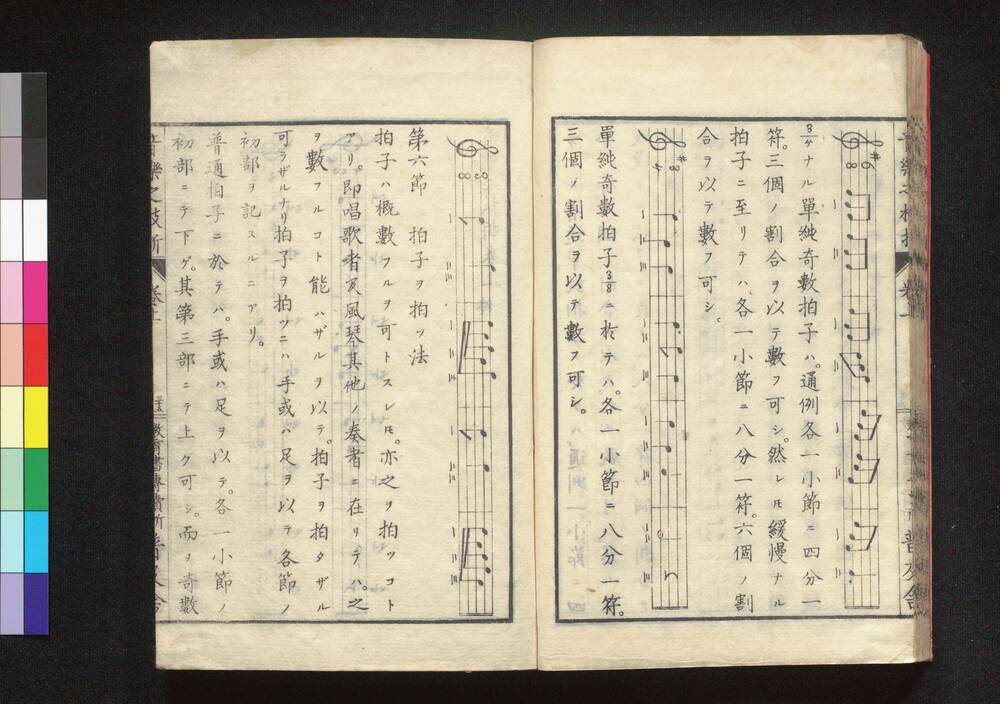 3/4ナル單純奇數拍子ハ。通例各一小節ニ四分一
符。三個ノ割合ヲ以テ數フ可シ。然レ𪜈緩慢ナル
拍子ニ至リテハ、各一小節ニ八分一符。六個ノ割
合ヲ以テ數フ可シ。
單純奇數拍子3/8ニ於テハ。各一小節ニ八分一符。
三個ノ割合ヲ以テ數フ可シ。
第六節 拍子ヲ拍ツ法
拍子ハ概數フルヲ可トスレ𪜈。亦之ヲ拍ツコト
アリ。即唱歌者及風琴其他ノ奏者ニ在リテハ。之
ヲ數フルコト能ハザルヲ以テ。拍子ヲ拍タザル
可ラザルナリ拍子ヲ拍ツニハ手或ハ足ヲ以テ各節ノ
初部ヲ記スルニアリ。
普通拍子ニ於テハ。手或ハ足ヲ以テ。各一小節ノ
初部ニテ下ゲ。其第三部ニテ上ク可シ。而ヲ奇數